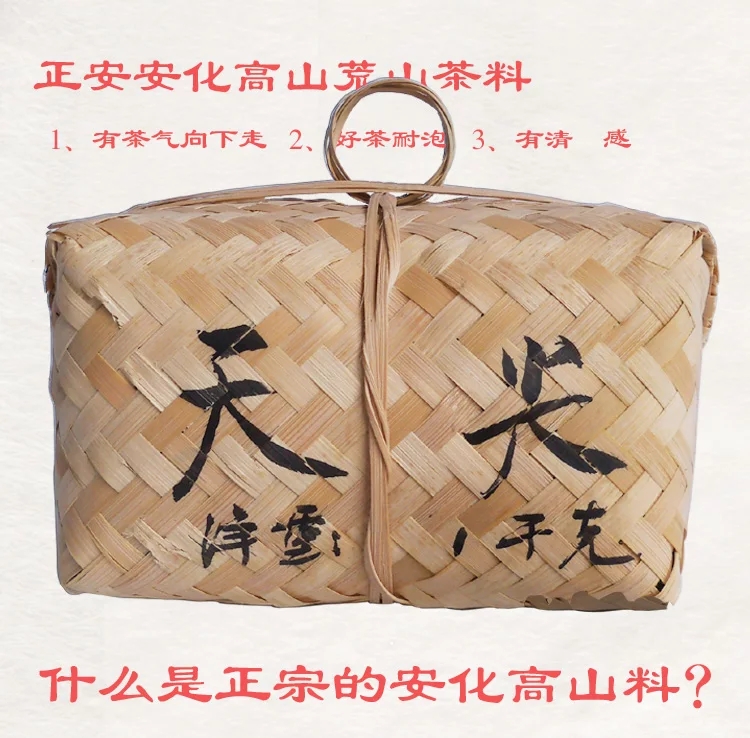 正安安化高山荒山茶料
1、有茶气向下走 2、好茶耐泡 3、有清 感
天 尖
净重: 1千克
什么是正宗的安化高山料？